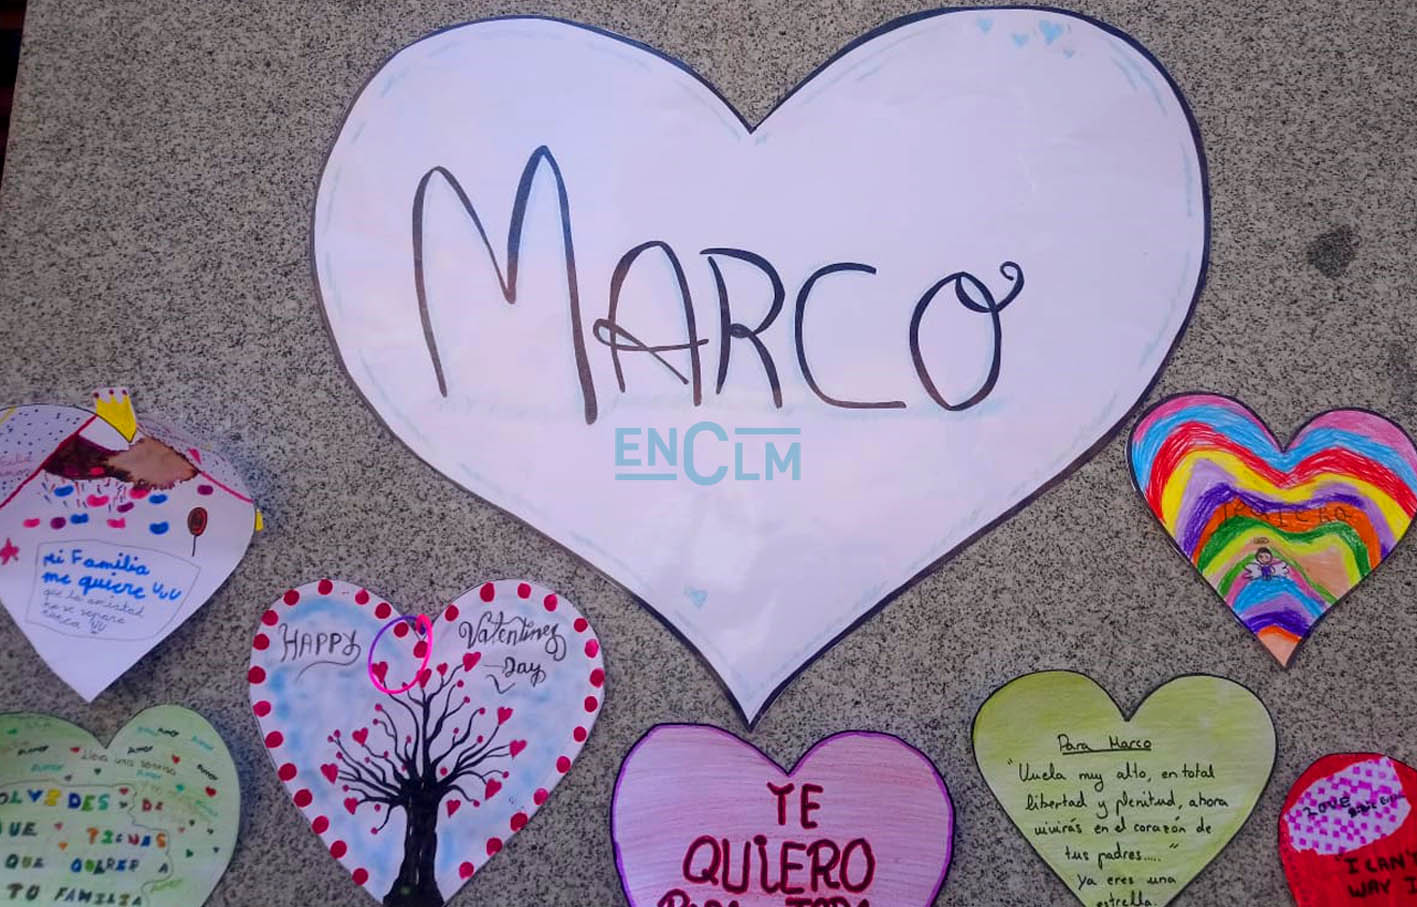 MARCO
ENCLM
Mi Familia
me quiere UuU
que la amistad
no se separe
nunca
TQUIERO
HAPPY
Valentines
Day
Amor
Amor
Amor
Lleva una sonrisa
Amor
OLVIDES DE
QUE TIENAS
QUE QUERER A
TU FAMILIA
TE
QUIERO
PARA TODA
Para Marco
"Vuela muy alto, en total
libertad y plenitud, ahora
vivirás en el corazón de
tus padres....."
Ya eres una
estrella.
LOVE
"I CAN'T
WAY I